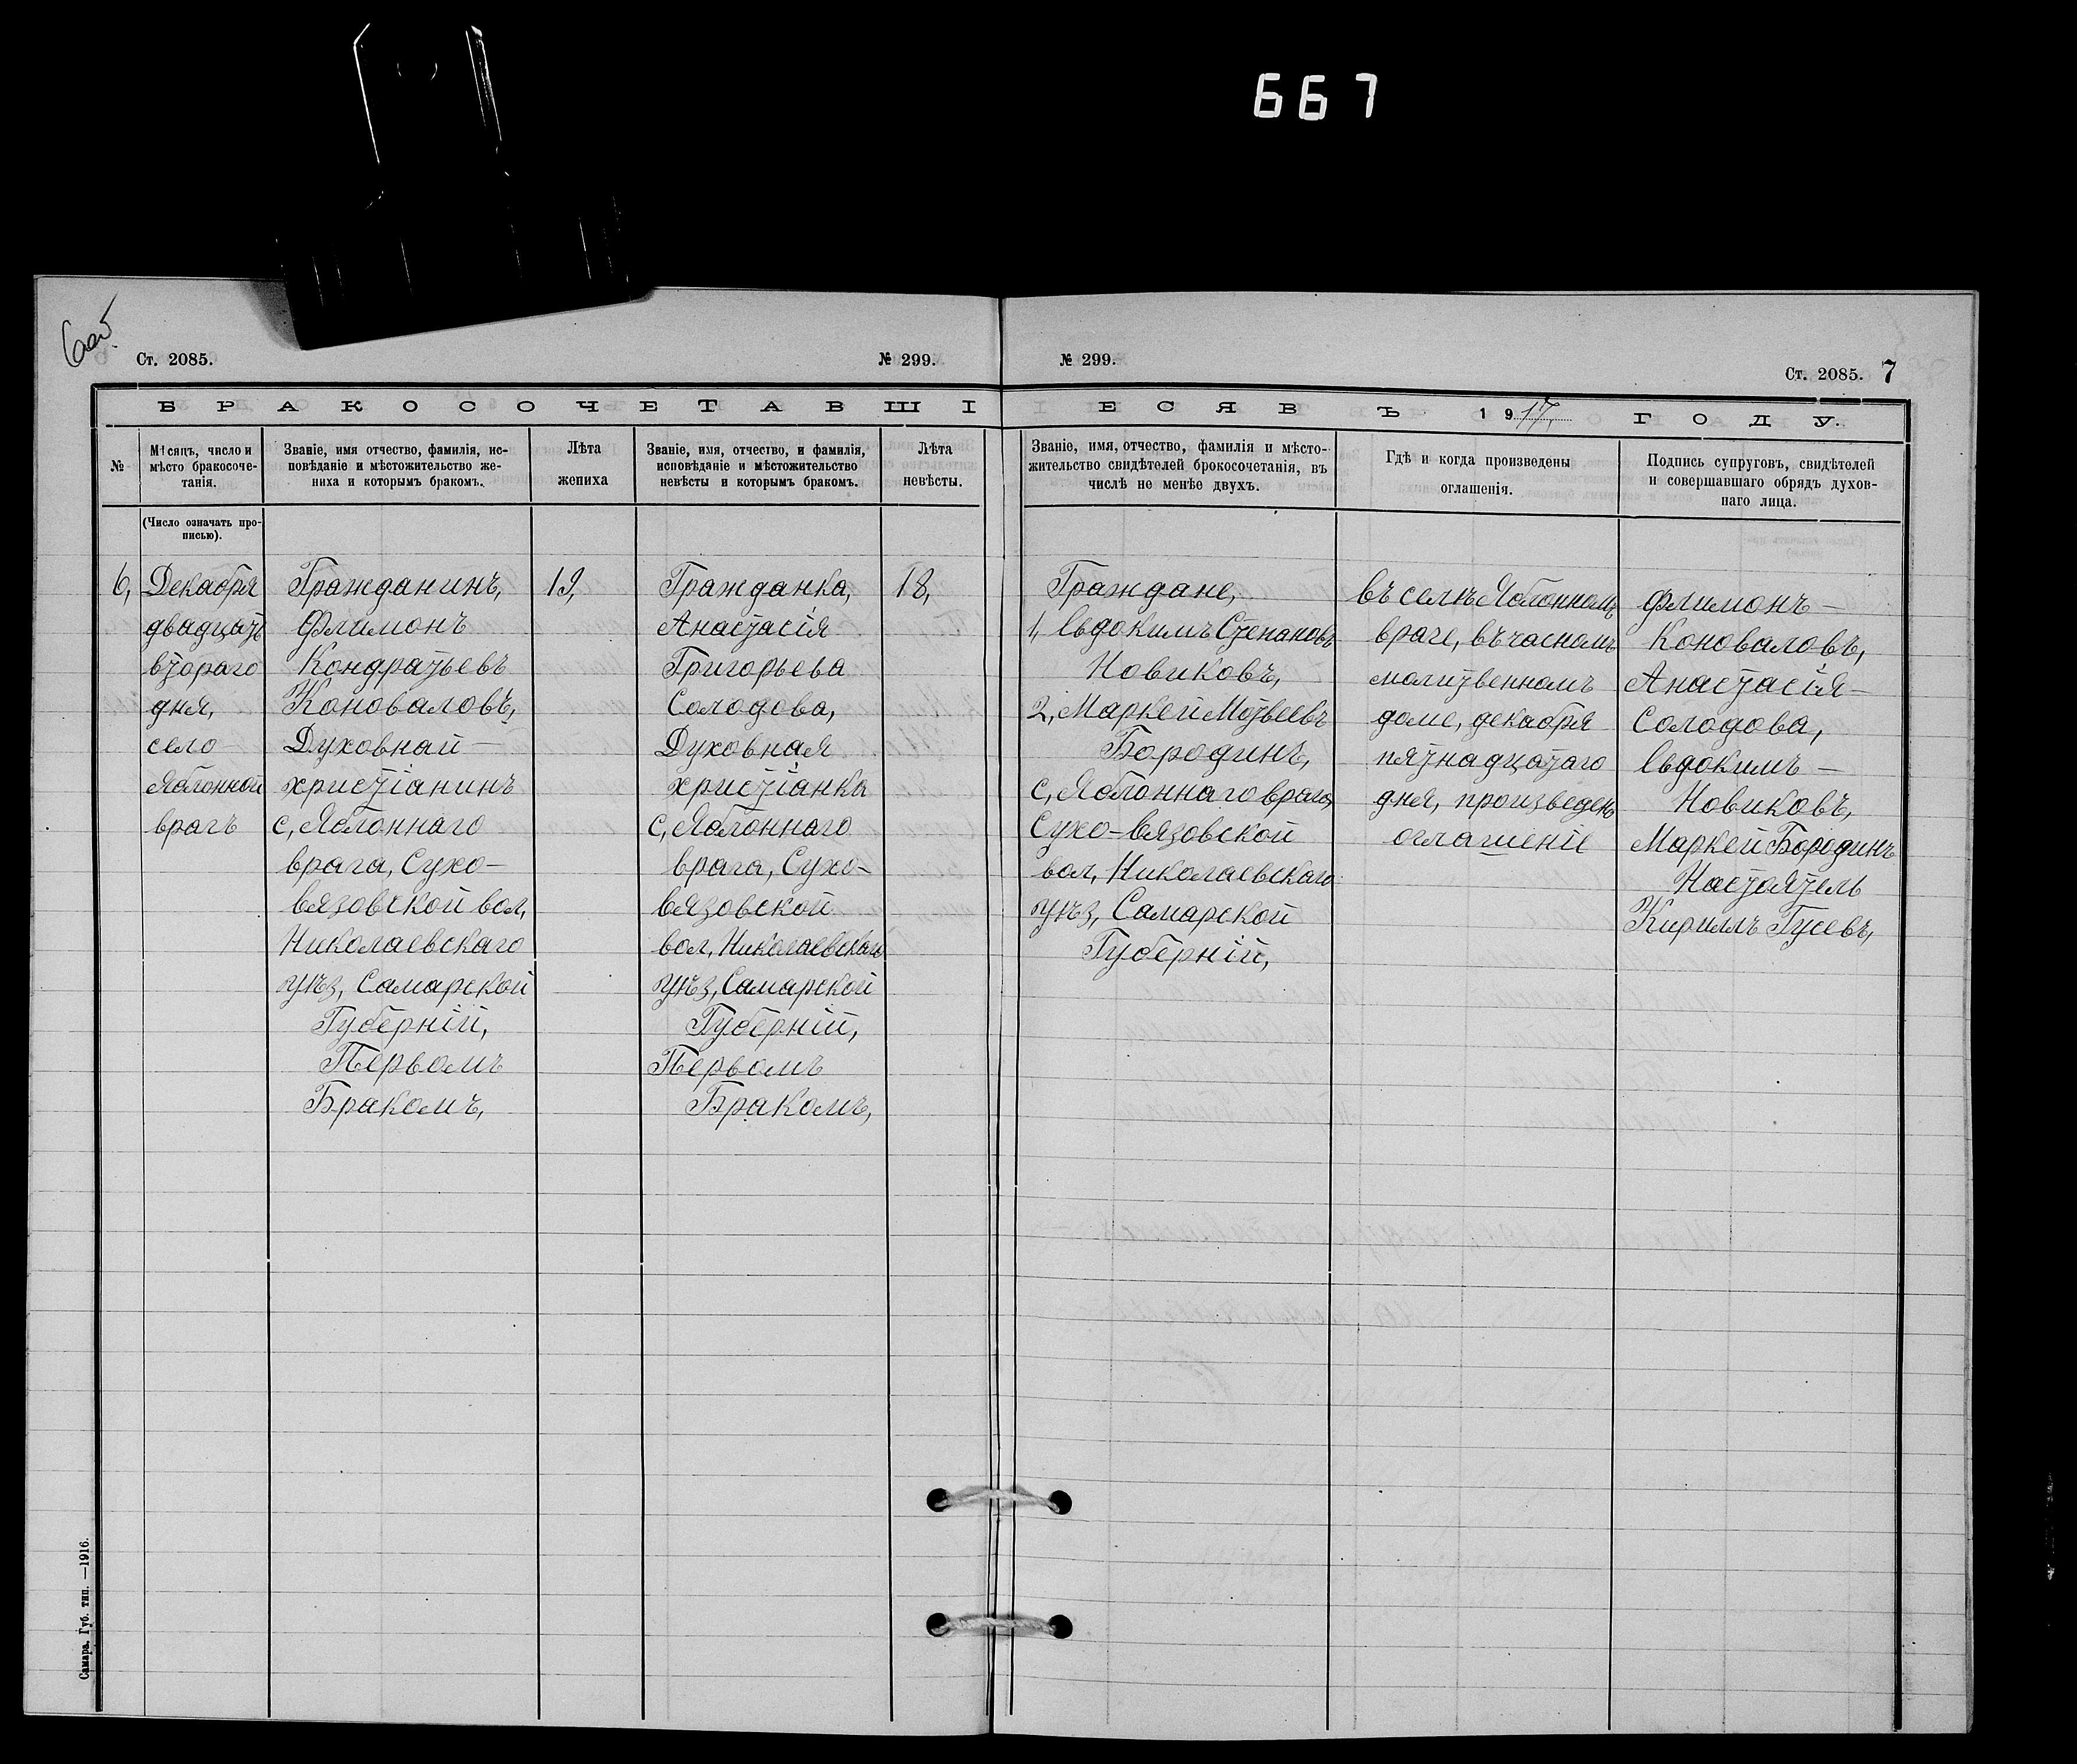 667
Ст. 2085.
№ 299.
№ 299.
Ст. 2085. 7
БРАКОСОЧЕТАВШІ
ІЕСЯ ВЪ 1917 ГОДУ.
№
Мѣсяцъ, число и
мѣсто бракосоче-
танія.
Званіе, имя отчество, фамилія, ис-
повѣданіе и мѣстожительство же-
ниха и которымъ бракомъ.
Лѣта
жениха
Званіе, имя, отчество, и фамилія,
исповѣданіе и мѣстожительство
невѣсты и которымъ бракомъ.
Лѣта
невѣсты.
Званіе, имя, отчество, фамилія и мѣсто-
жительство свидѣтелей брокосочетанія, въ
числѣ не менѣе двухъ.
Гдѣ и когда произведены
оглашенія.
Подпись супруговъ, свидѣтелей
и совершавшаго обрядъ духов-
наго лица.
(Число означать про-
писью).
6,
Декабря
двадцать
втораго
дня,
село
Яблонной
врагъ
Гражданинъ,
Филимонъ
Кондратьевъ
Коноваловъ,
Духовнай —
христіанинъ
с, Яблоннаго
врага, Сухо-
вязовской вол,
Николаевскаго
уѣз, Самарской
Губерніи,
Первомъ
Бракомъ,
19,
Гражданка,
Анастасія
Григорьева
Солодова,
Духовная
христіанка
с, Яблоннаго
врага, Сухо-
вязовской
вол, Николаевскаго
уѣз, Самарской
Губерніи,
Первомъ
Бракомъ,
18,
Граждане,
1, Евдокимъ Степановъ
Новиковъ,
2, Маркей Мотвеевъ
Бородинъ,
с, Яблоннаго врага,
Сухо-вязовской
вол, Николаевскаго
уѣз, Самарской
Губерніи,
въ селѣ Яблонномъ
враге, въ часномъ
молитвенномъ
доме, декабря
пятнадцатаго
дня, произведено
оглашеніе
Филимонъ —
Коноваловъ,
Анастасія —
Солодова,
Евдокимъ —
Новиковъ,
Маркей Бородинъ
Настоятель
Кириллъ Гусевъ,
Самара. Губ. тип. —1916.